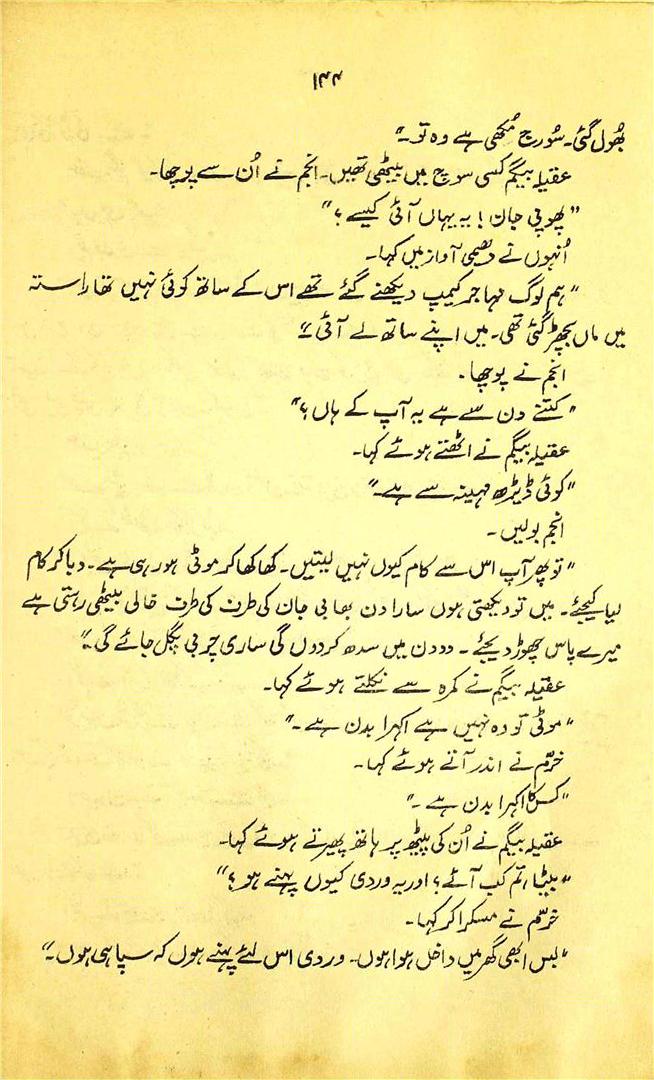 ۱۴۴
بھُول گئی۔ سُورج مُکھی ہے وہ تو۔"
عقیلہ بیگم کسی سوچ میں بیٹھی تھیں۔ انجم نے اُن سے پوچھا۔
"پھوپی جان! یہ یہاں آئی کیسے؟"
اُنہوں نے دھیمی آواز میں کہا۔
"ہم لوگ مہاجر کیمپ دیکھنے گئے تھے اس کے ساتھ کوئی نہیں تھا راستہ
میں ماں بچھڑ گئی تھی۔ میں اپنے ساتھ لے آئی۔"
انجم نے پوچھا۔
"کتنے دن سے ہے یہ آپ کے ہاں؟"
عقیلہ بیگم نے اٹھتے ہوئے کہا۔
"کوئی ڈیڑھ مہینہ سے ہے۔"
انجم بولیں۔
"تو پھر آپ اس سے کام کیوں نہیں لیتیں۔ کھا کھا کر موٹی ہو رہی ہے۔ دبا کر کام
لیا کیجئے۔ میں تو دیکھتی ہوں سارا دن بھابی جان کی طرف کی طرف خالی بیٹھی رہتی ہے
میرے پاس چھوڑ دیجئے۔ دو دن میں سدھ کر دوں گی ساری چربی پگل جائے گی۔"
عقیلہ بیگم نے کمرہ سے نکلتے ہوئے کہا۔
"موٹی تو وہ نہیں ہے اکہرا بدن ہے۔"
خرّم نے اندر آتے ہوئے کہا۔
"کس کا اکہرا بدن ہے۔"
عقیلہ بیگم نے اُن کی پیٹھ پر ہاتھ پھیرتے ہوئے کہا۔
"بیٹا، تم کب آئے؟ اور یہ وردی کیوں پہنے ہو؟"
خرّم نے مسکرا کر کہا۔
"بس ابھی گھر میں داخل ہوا ہوں۔ وردی اس لئے پہنے ہوں کہ سپاہی ہوں۔"